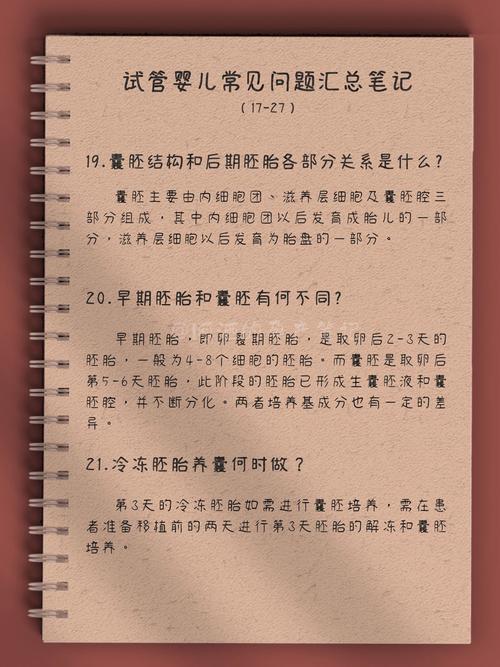 试管婴儿常见问题汇总笔记
(17-27)
19.囊胚结构和后期胚胎各部分关系是什么?
囊胚主要由内细胞团、滋养层细胞及囊胚腔三
部分组成，其中内细胞团以后发育成胎儿的一部
分，滋养层细胞以后发育为胎盘的一部分。
20.早期胚胎和囊胚有何不同?
早期胚胎，即卵裂期胚胎，是取卵后2-3天的
胚胎，一般为4-8个细胞的胚胎。而囊胚是取卵后
第5-6天胚胎，此阶段的胚胎已形成生囊胚液和囊
胚腔，并不断分化。两者培养基成分也有一定的差
异。
21.冷冻胚胎养囊何时做?
第3天的冷冻胚胎如需进行囊胚培养，需在患
者准备移植前的两天进行第3天胚胎的解冻和囊胚
培养。